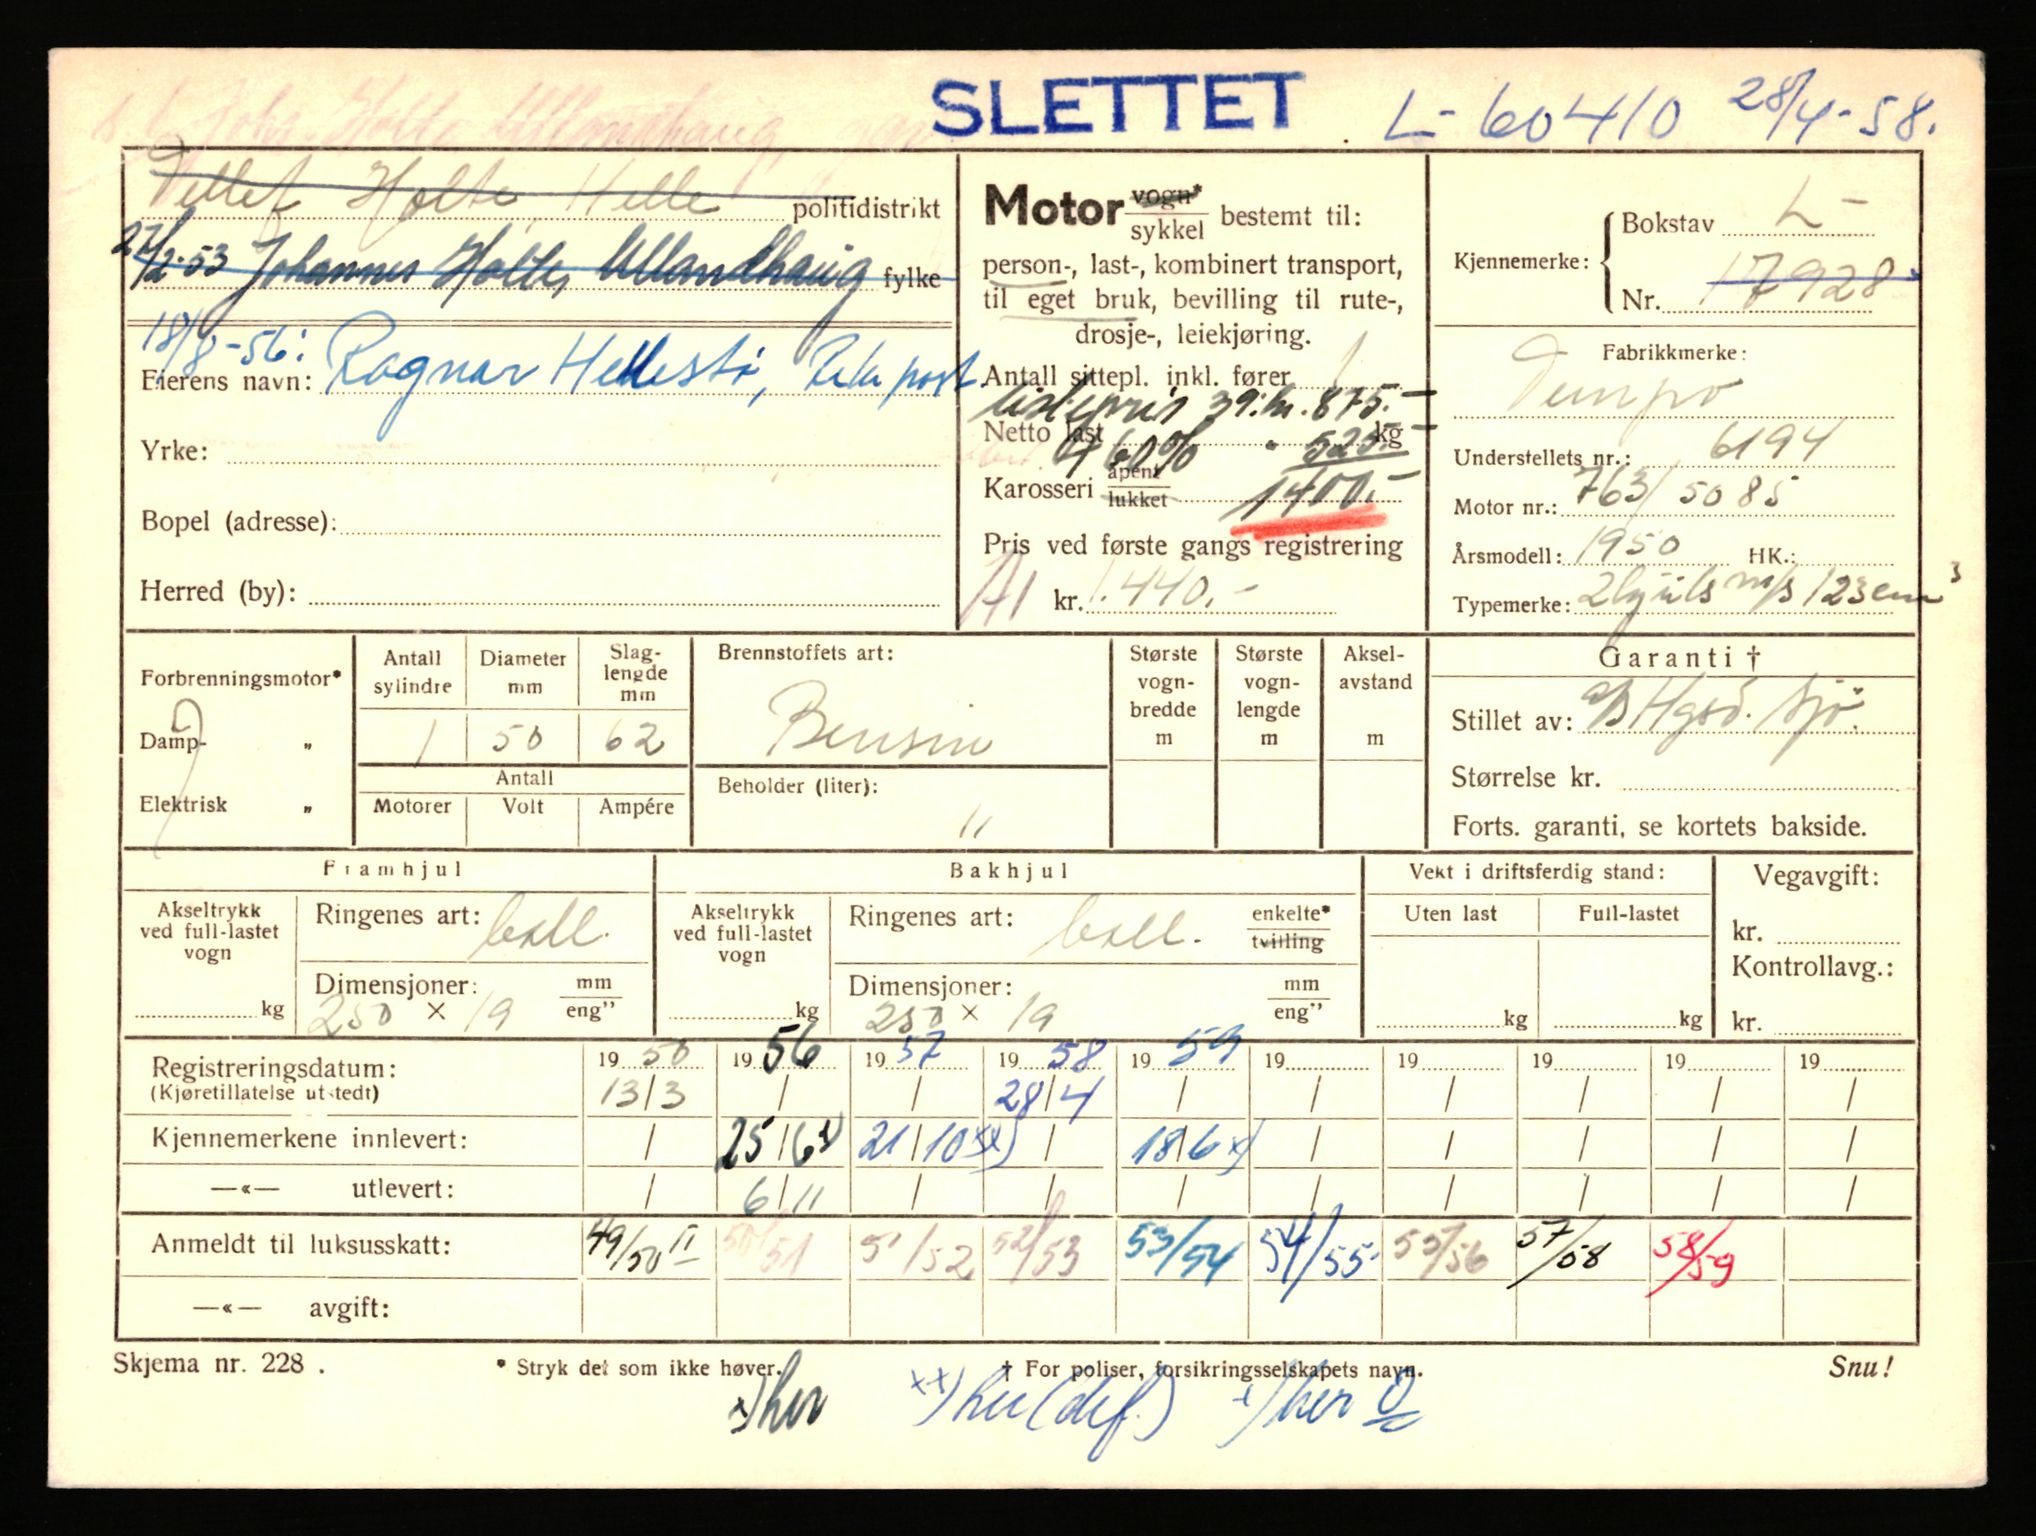 SLETTET L- 60410 28/4-58.
Detlef Holte, Helle politidistrikt
27/2-53 Johannes Holte, Ullandhaug fylke
18/8-56: Eierens navn: Ragnar Hellestø, Reke post.
Yrke:
Bopel (adresse):
Herred (by):
Motor vogn*/sykkel bestemt til:
person-, last-, kombinert transport,
til eget bruk, bevilling til rute-,
drosje-, leiekjøring.
Antall sittepl. inkl. fører 1
Listepris 39: kr. 875.-
Netto last kg
+ 60% " 525.-
Karosseri åpent/lukket 1400.-
Pris ved første gangs registrering
A1 kr. 1.440.-
Kjennemerke: Bokstav L-
Nr. 17928
Fabrikkmerke:
Tempo
Understellets nr.: 6194
Motor nr.: 763/5085
Årsmodell: 1950 HK.:
Typemerke: 2hjuls m/s 123cm³
Forbrenningsmotor*
Damp- "
Elektrisk "
Antall sylindre 1
Diameter mm 50
Slag-lengde mm 62
Antall
Motorer Volt Ampére
Brennstoffets art:
Bensin
Beholder (liter):
11
Største vogn-bredde m
Største vogn-lengde m
Aksel-avstand m
Garanti †
Stillet av: A/S Hgsd. Sjø.
Størrelse kr.
Forts. garanti, se kortets bakside.
Framhjul
Akseltrykk ved full-lastet vogn
kg
Ringenes art: ball.
Dimensjoner: mm/eng"
250 × 19
Bakhjul
Akseltrykk ved full-lastet vogn
kg
Ringenes art: ball. enkelte*/tvilling
Dimensjoner: mm/eng"
250 × 19
Vekt i driftsferdig stand:
Uten last Full-lastet
kg kg
Vegavgift:
kr.
Kontrollavg.:
kr.
Registreringsdatum: 1950 1956 1957 1958 1959 19 19 19 19 19
(Kjøretillatelse utstedt) 13/3 / / 28/4 / / / / / /
Kjennemerkene innlevert: / 25/6 x) 21/10 xx) / 18/6 x) / / / / /
—«— utlevert: / 6/11 / / / / / / / /
Anmeldt til luksusskatt: 49/50 II 50/51 51/52 52/53 53/54 54/55 55/56 57/58 58/59
—«— avgift:
Skjema nr. 228. * Stryk det som ikke høver. † For poliser, forsikringsselskapets navn. Snu!
x) her xx) her (def.) x) her